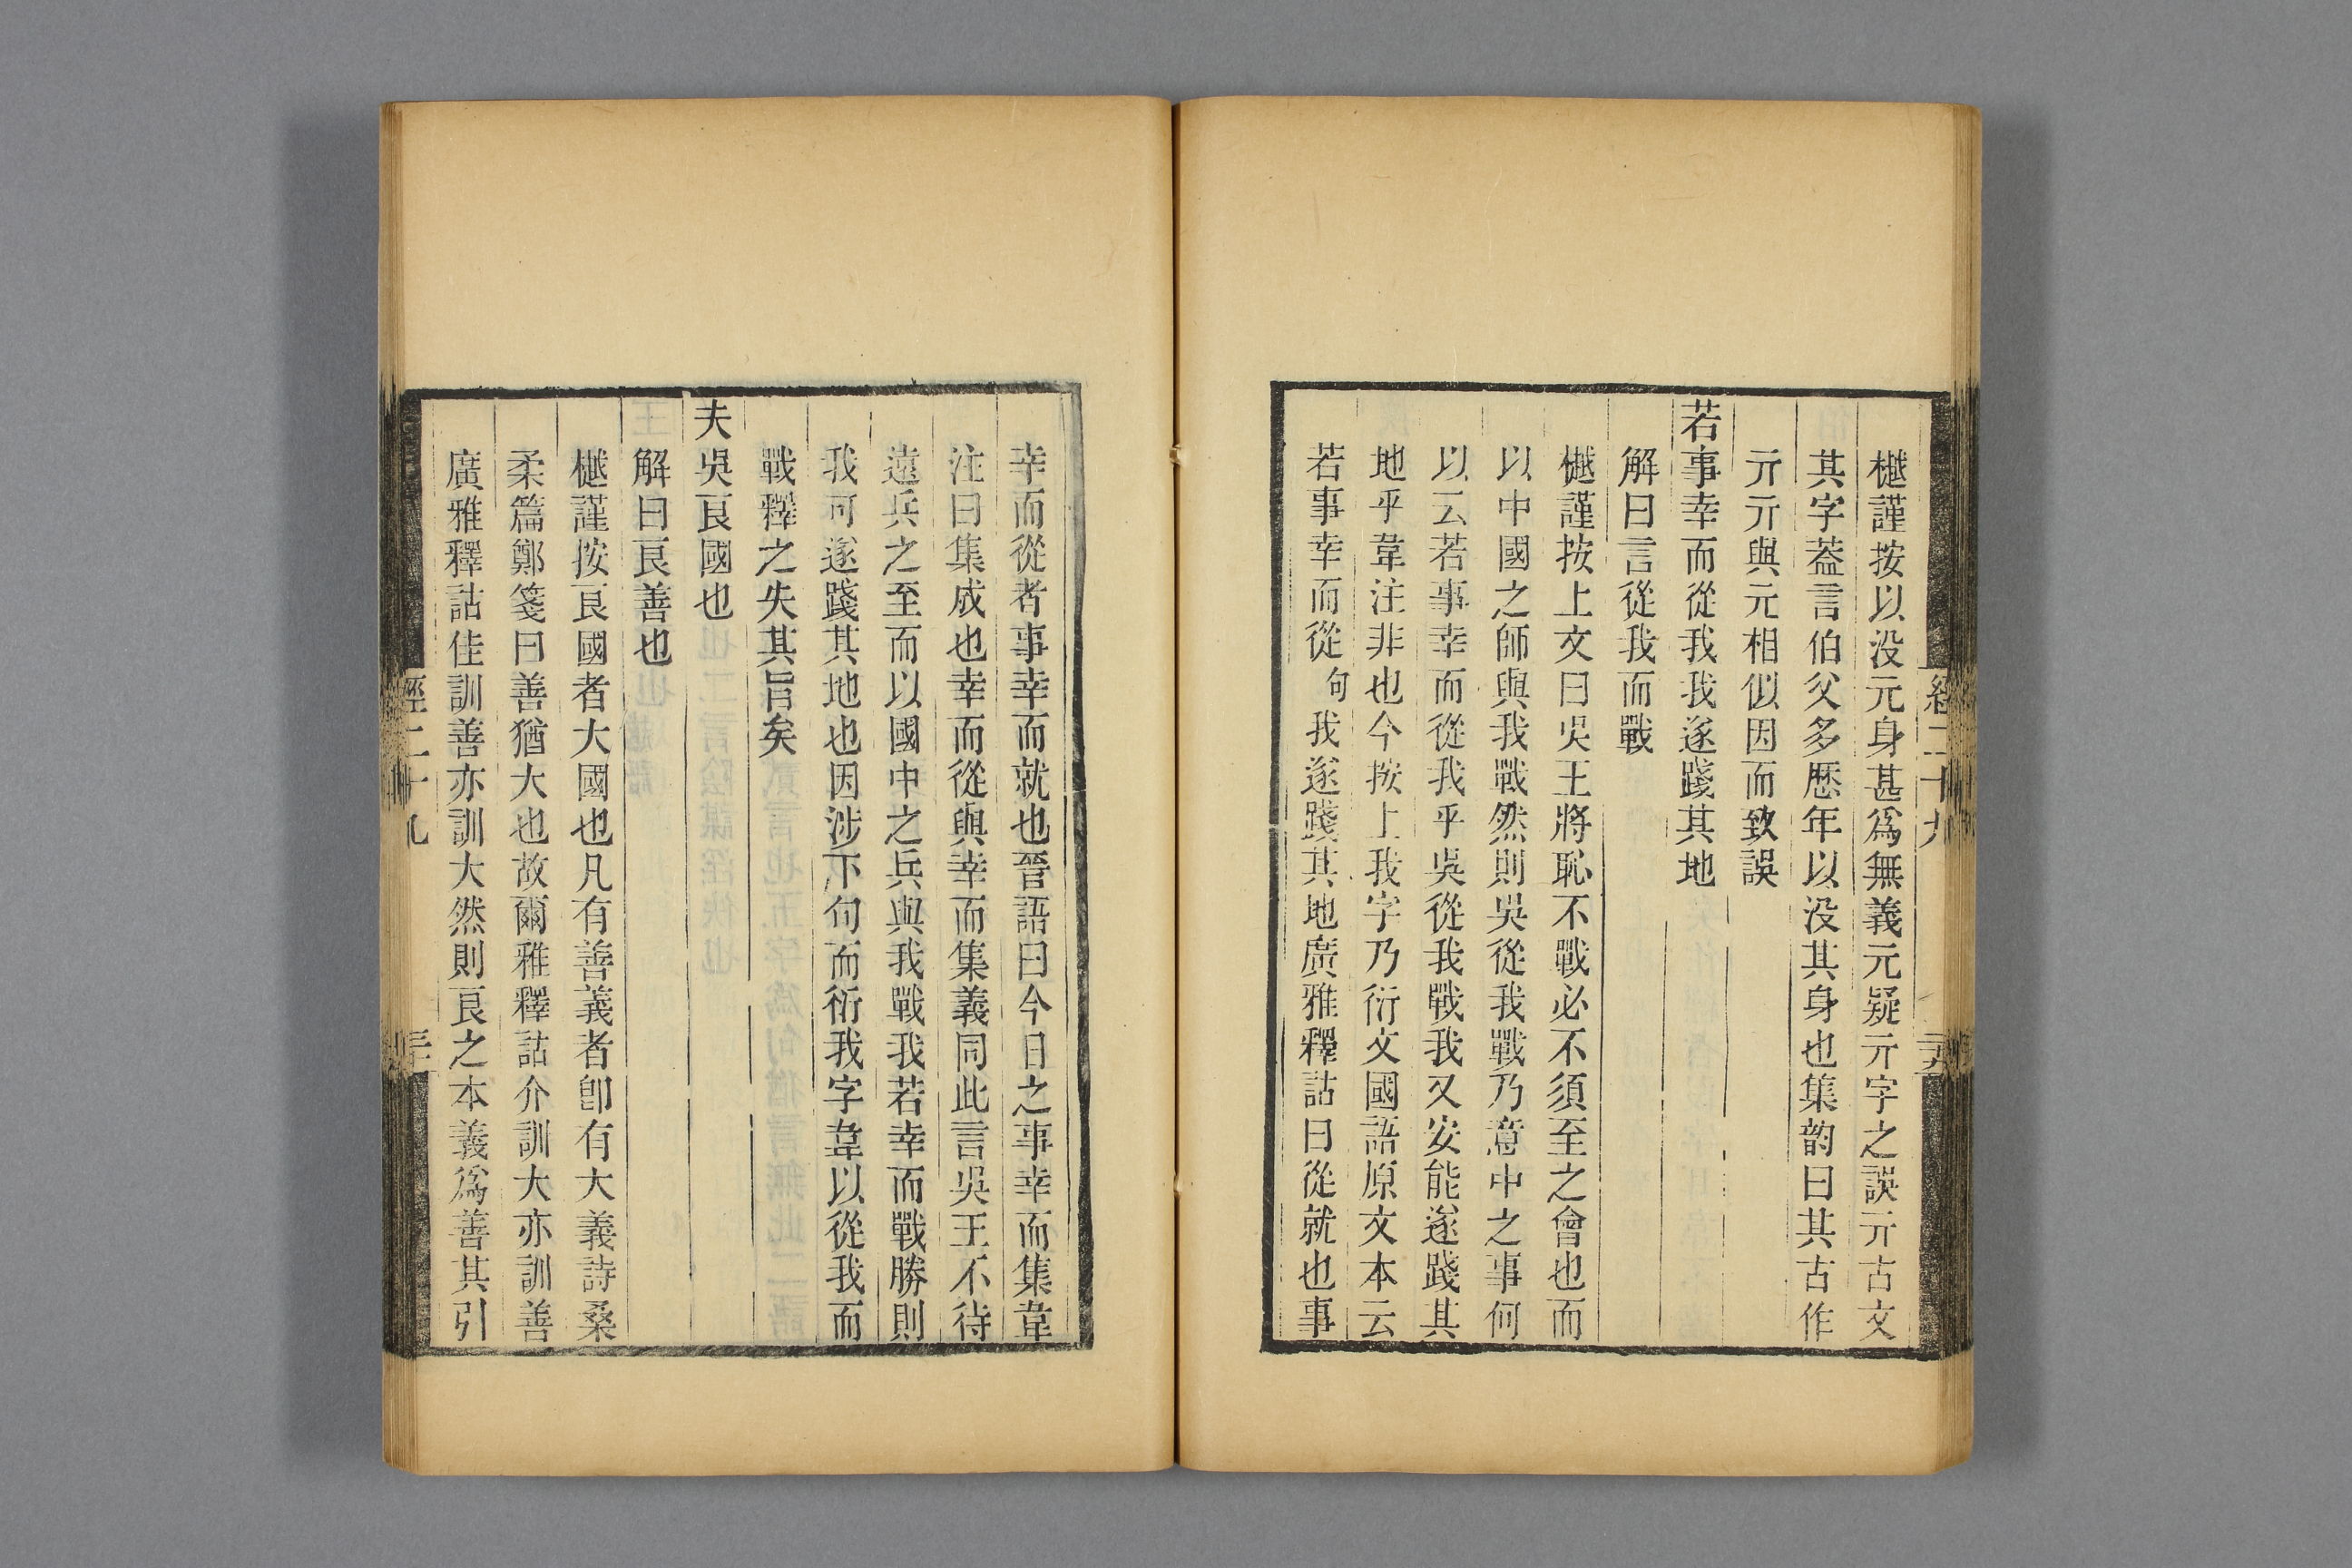 樾謹按以没元身甚爲無義元疑亓字之誤亓古文
其字葢言伯父多歷年以没其身也集韵曰其古作
亓元亓與元相似因而致誤
若事幸而從我我遂踐其地
解曰言從我而戰
樾謹按上文曰吳王將恥不戰必不須至之會也而
以中國之師與我戰然則吳從我戰乃意中之事何
以云若事幸而從我乎吳從我戰我又安能遂踐其
地乎韋注非也今按上我字乃衍文國語原文本云
若事幸而從句我遂踐其地廣雅釋詁曰從就也事
幸而從者事幸而就也晉語曰今日之事幸而集韋
注曰集成也幸而從與幸而集義同此言吳王不待
遠兵之至而以國中之兵與我戰我若幸而戰勝則
我可遂踐其地也因涉下句而衍我字韋以從我而
戰釋之失其旨矣
夫吳良國也
解曰良善也
樾謹按良國者大國也凡有善義者卽有大義詩桑
柔篇鄭箋曰善猶大也故爾雅釋詁介訓大亦訓善
廣雅釋詁佳訓善亦訓大然則良之本義爲善其引
經二十九